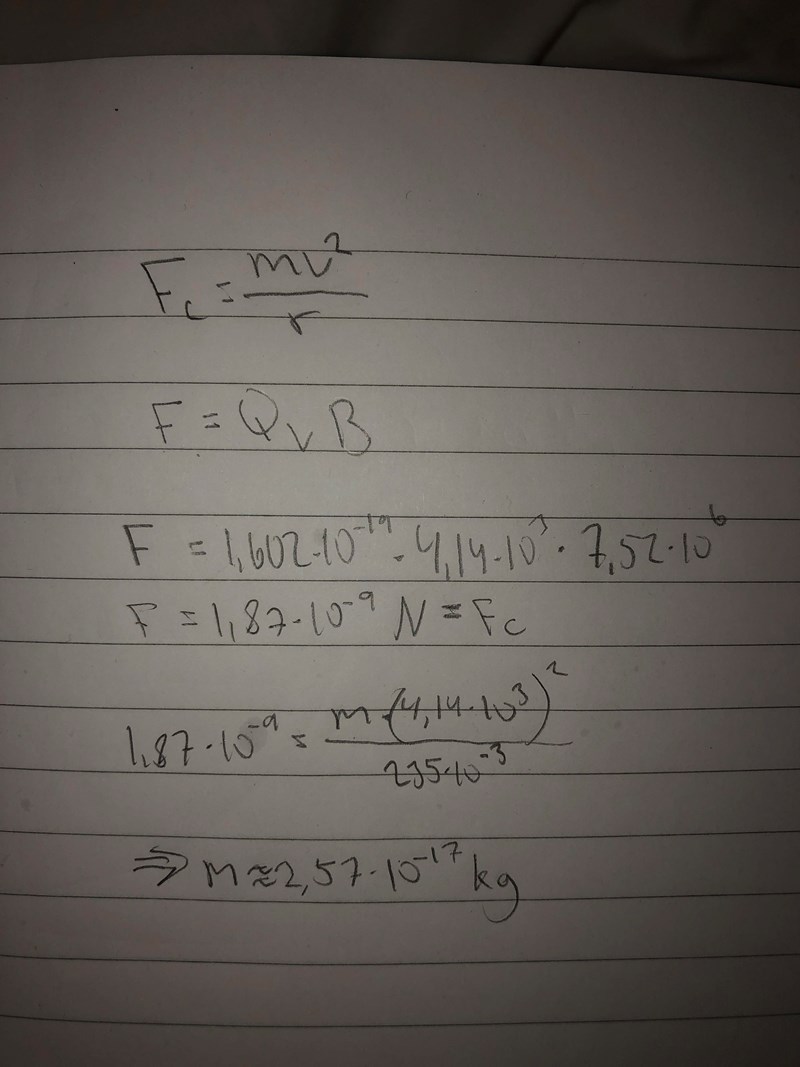 F_c = mv²/r
F = QvB
F = 1,602·10⁻¹⁹ · 4,14·10³ · 7,52·10⁶
F = 1,87·10⁻⁹ N = F_c
1,87·10⁻⁹ = m·(4,14·10³)²/235·10⁻³
⇒ m ≈ 2,57·10⁻¹⁷ kg